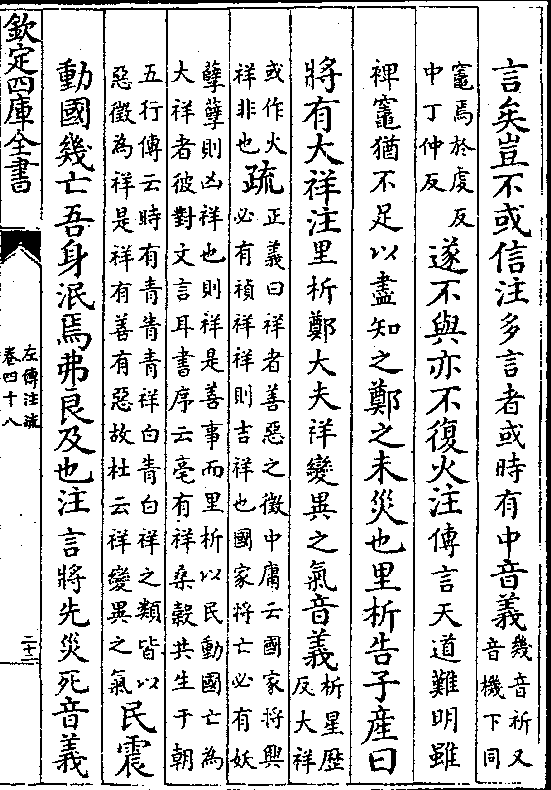 言矣豈不或信注多言者或時有中音義
幾音祈又
音機下同
竈焉於虔反
中丁仲反
遂不與亦不復火注傳言天道難明雖
裨竈猶不足以盡知之鄭之未災也里析告子產曰
將有大祥注里析鄭大夫祥變異之氣音義
析星歴
反大祥
或作火
祥非也
疏
正義曰祥者善惡之徴中庸云國家將興
必有禎祥祥則吉祥也國家將亡必有妖
孽孽則凶祥也則祥是善事而里析以民動國亡為
大祥者彼對文言耳書序云亳有祥桑榖共生于朝
五行傳云時有青眚青祥白眚白祥之類皆以
惡徴為祥是祥有善有惡故杜云祥變異之氣
民震
動國幾亡吾身泯焉弗良及也注言將先災死音義
欽定四庫全書
左傳注疏
卷四十八